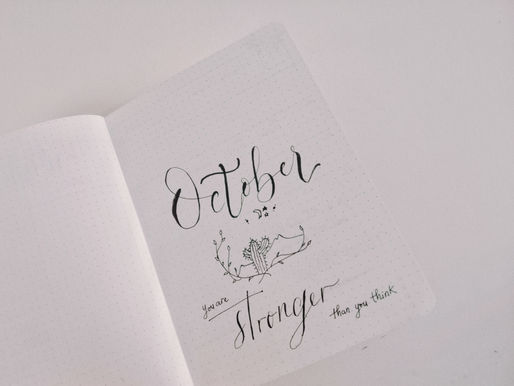 October
you are stronger than you think